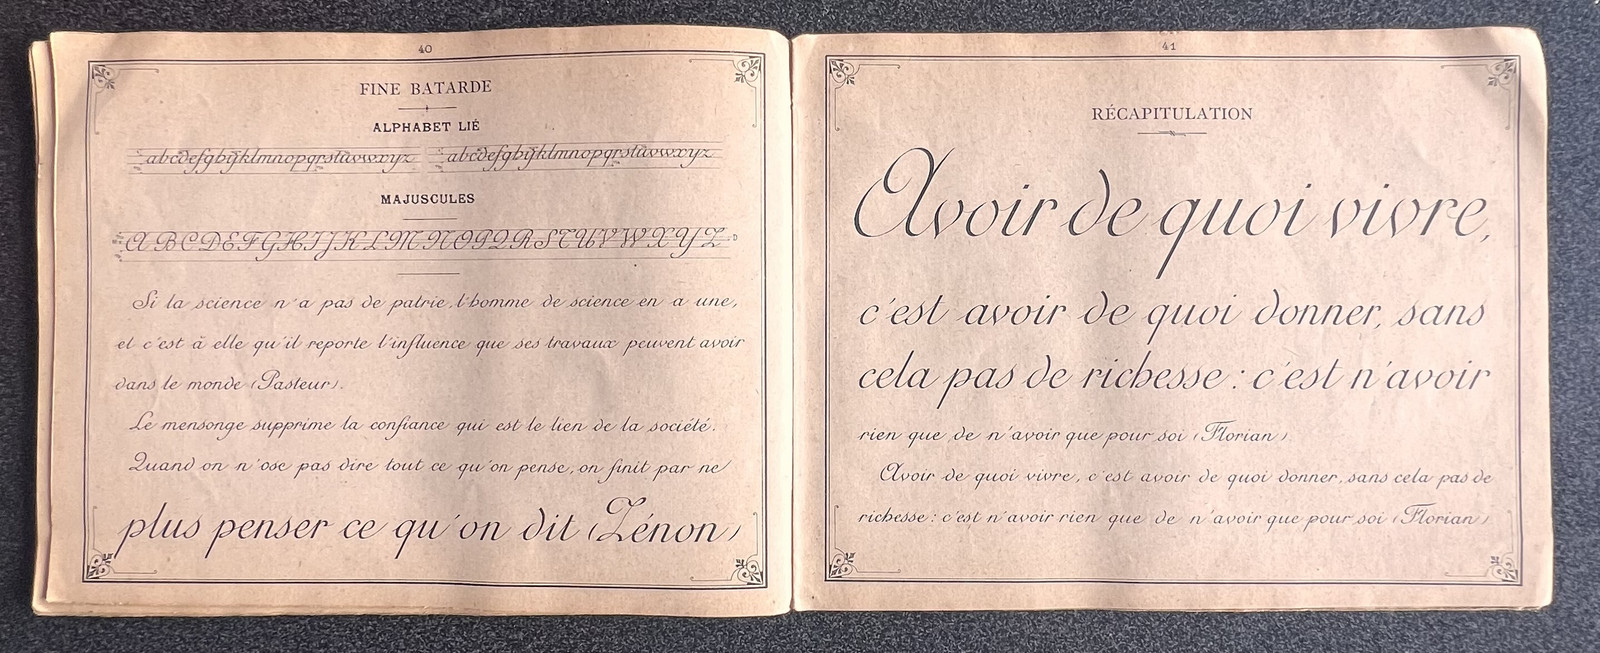 40
FINE BATARDE
ALPHABET LIÉ
abcdefghijklmnopqrstuvwxyz abcdefghijklmnopqrstuvwxyz
MAJUSCULES
ABCDEFGHIJKLMNOPQRSTUVWXYZ
Si la science n'a pas de patrie, l'homme de science en a une,
et c'est à elle qu'il reporte l'influence que ses travaux peuvent avoir
dans le monde (Pasteur).
Le mensonge supprime la confiance qui est le lien de la société.
Quand on n'ose pas dire tout ce qu'on pense, on finit par ne
plus penser ce qu'on dit (Zénon)
41
RÉCAPITULATION
Avoir de quoi vivre,
c'est avoir de quoi donner, sans
cela pas de richesse : c'est n'avoir
rien que de n'avoir que pour soi (Florian)
Avoir de quoi vivre, c'est avoir de quoi donner, sans cela pas de
richesse : c'est n'avoir rien que de n'avoir que pour soi (Florian)